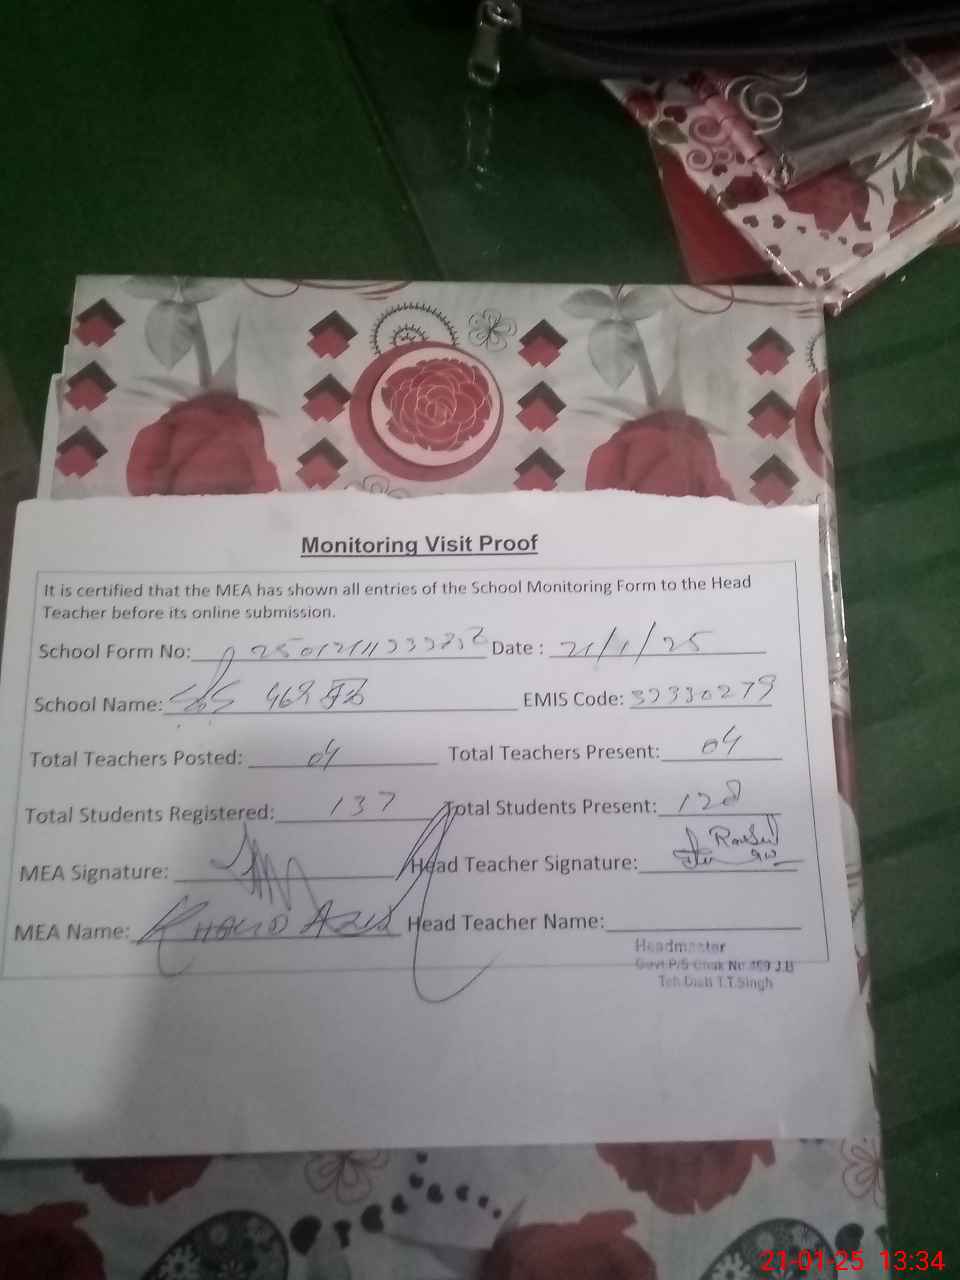 Monitoring Visit Proof
It is certified that the MEA has shown all entries of the School Monitoring Form to the Head
Teacher before its online submission.
School Form No: Date : 21/1/25
School Name: EMIS Code:
Total Teachers Posted: 04 Total Teachers Present: 04
Total Students Registered: 137 Total Students Present: 128
MEA Signature: Head Teacher Signature:
MEA Name: KHALID AZIZ Head Teacher Name:
Headmaster
Govt.P/S Chak No.469 J.B
Teh Distt T.T.Singh
21-01-25 13:34